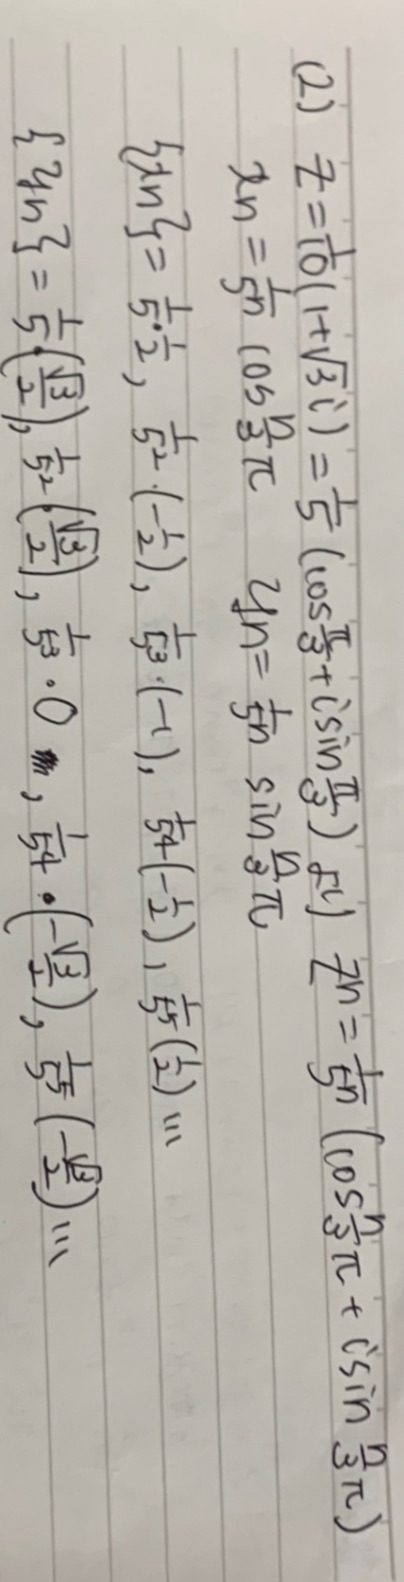 (2) z = 1/10 (1+√3 i) = 1/5 (cos π/3 + i sin π/3) より z^n = 1/5^n (cos n/3 π + i sin n/3 π)
x_n = 1/5^n cos n/3 π y_n = 1/5^n sin n/3 π
{x_n} = 1/5・1/2, 1/5^2・(-1/2), 1/5^3・(-1), 1/5^4 (-1/2), 1/5^5 (1/2) …
{y_n} = 1/5・(√3/2), 1/5^2・(√3/2), 1/5^3・0, 1/5^4・(-√3/2), 1/5^5 (-√3/2) …